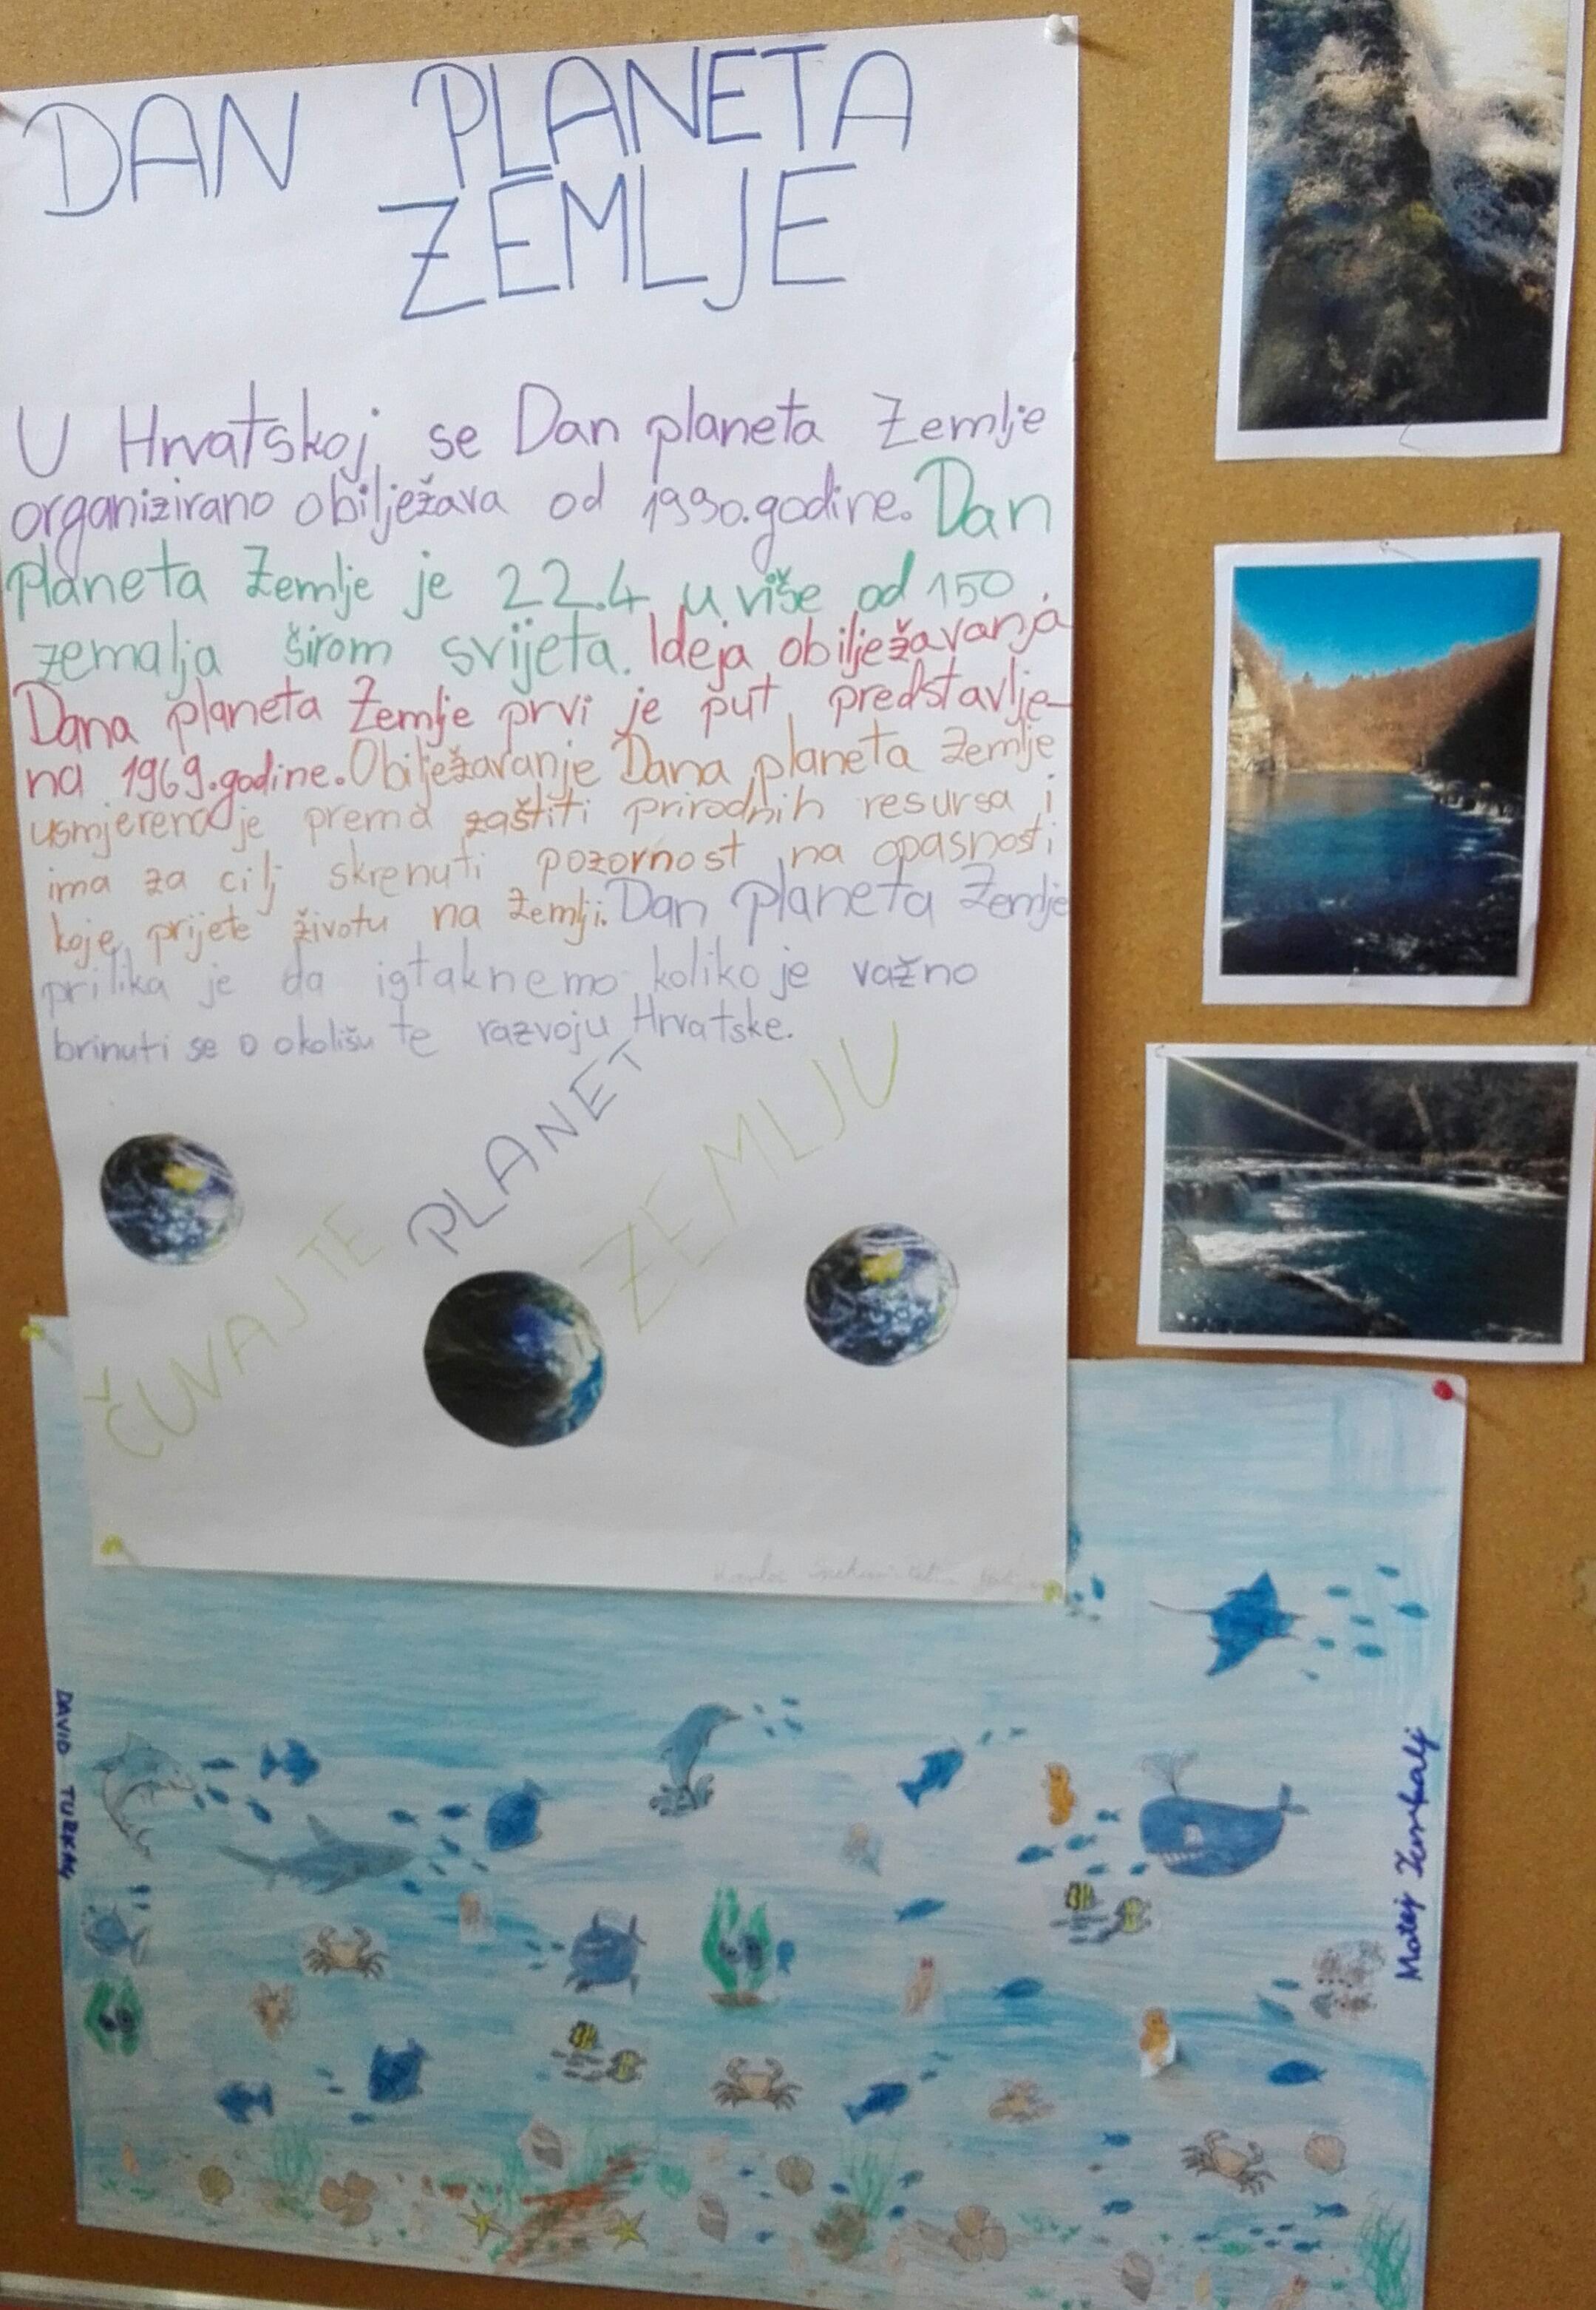 DAN PLANETA
ZEMLJE
U Hrvatskoj se Dan planeta Zemlje
organizirano obilježava od 1990.godine. Dan
planeta Zemlje je 22.4 u više od 150
zemalja širom svijeta. Ideja obilježavanja
Dana planeta Zemlje prvi je put predstavlje-
na 1969.godine. Obilježavanje Dana planeta Zemlje
usmjereno je prema zaštiti prirodnih resursa i
ima za cilj skrenuti pozornost na opasnosti
koje prijete životu na Zemlji. Dan planeta Zemlje
prilika je da igtaknemo koliko je važno
brinuti se o okolišu te razvoju Hrvatske.
ČUVAJTE PLANET ZEMLJU
DAVID
Matej